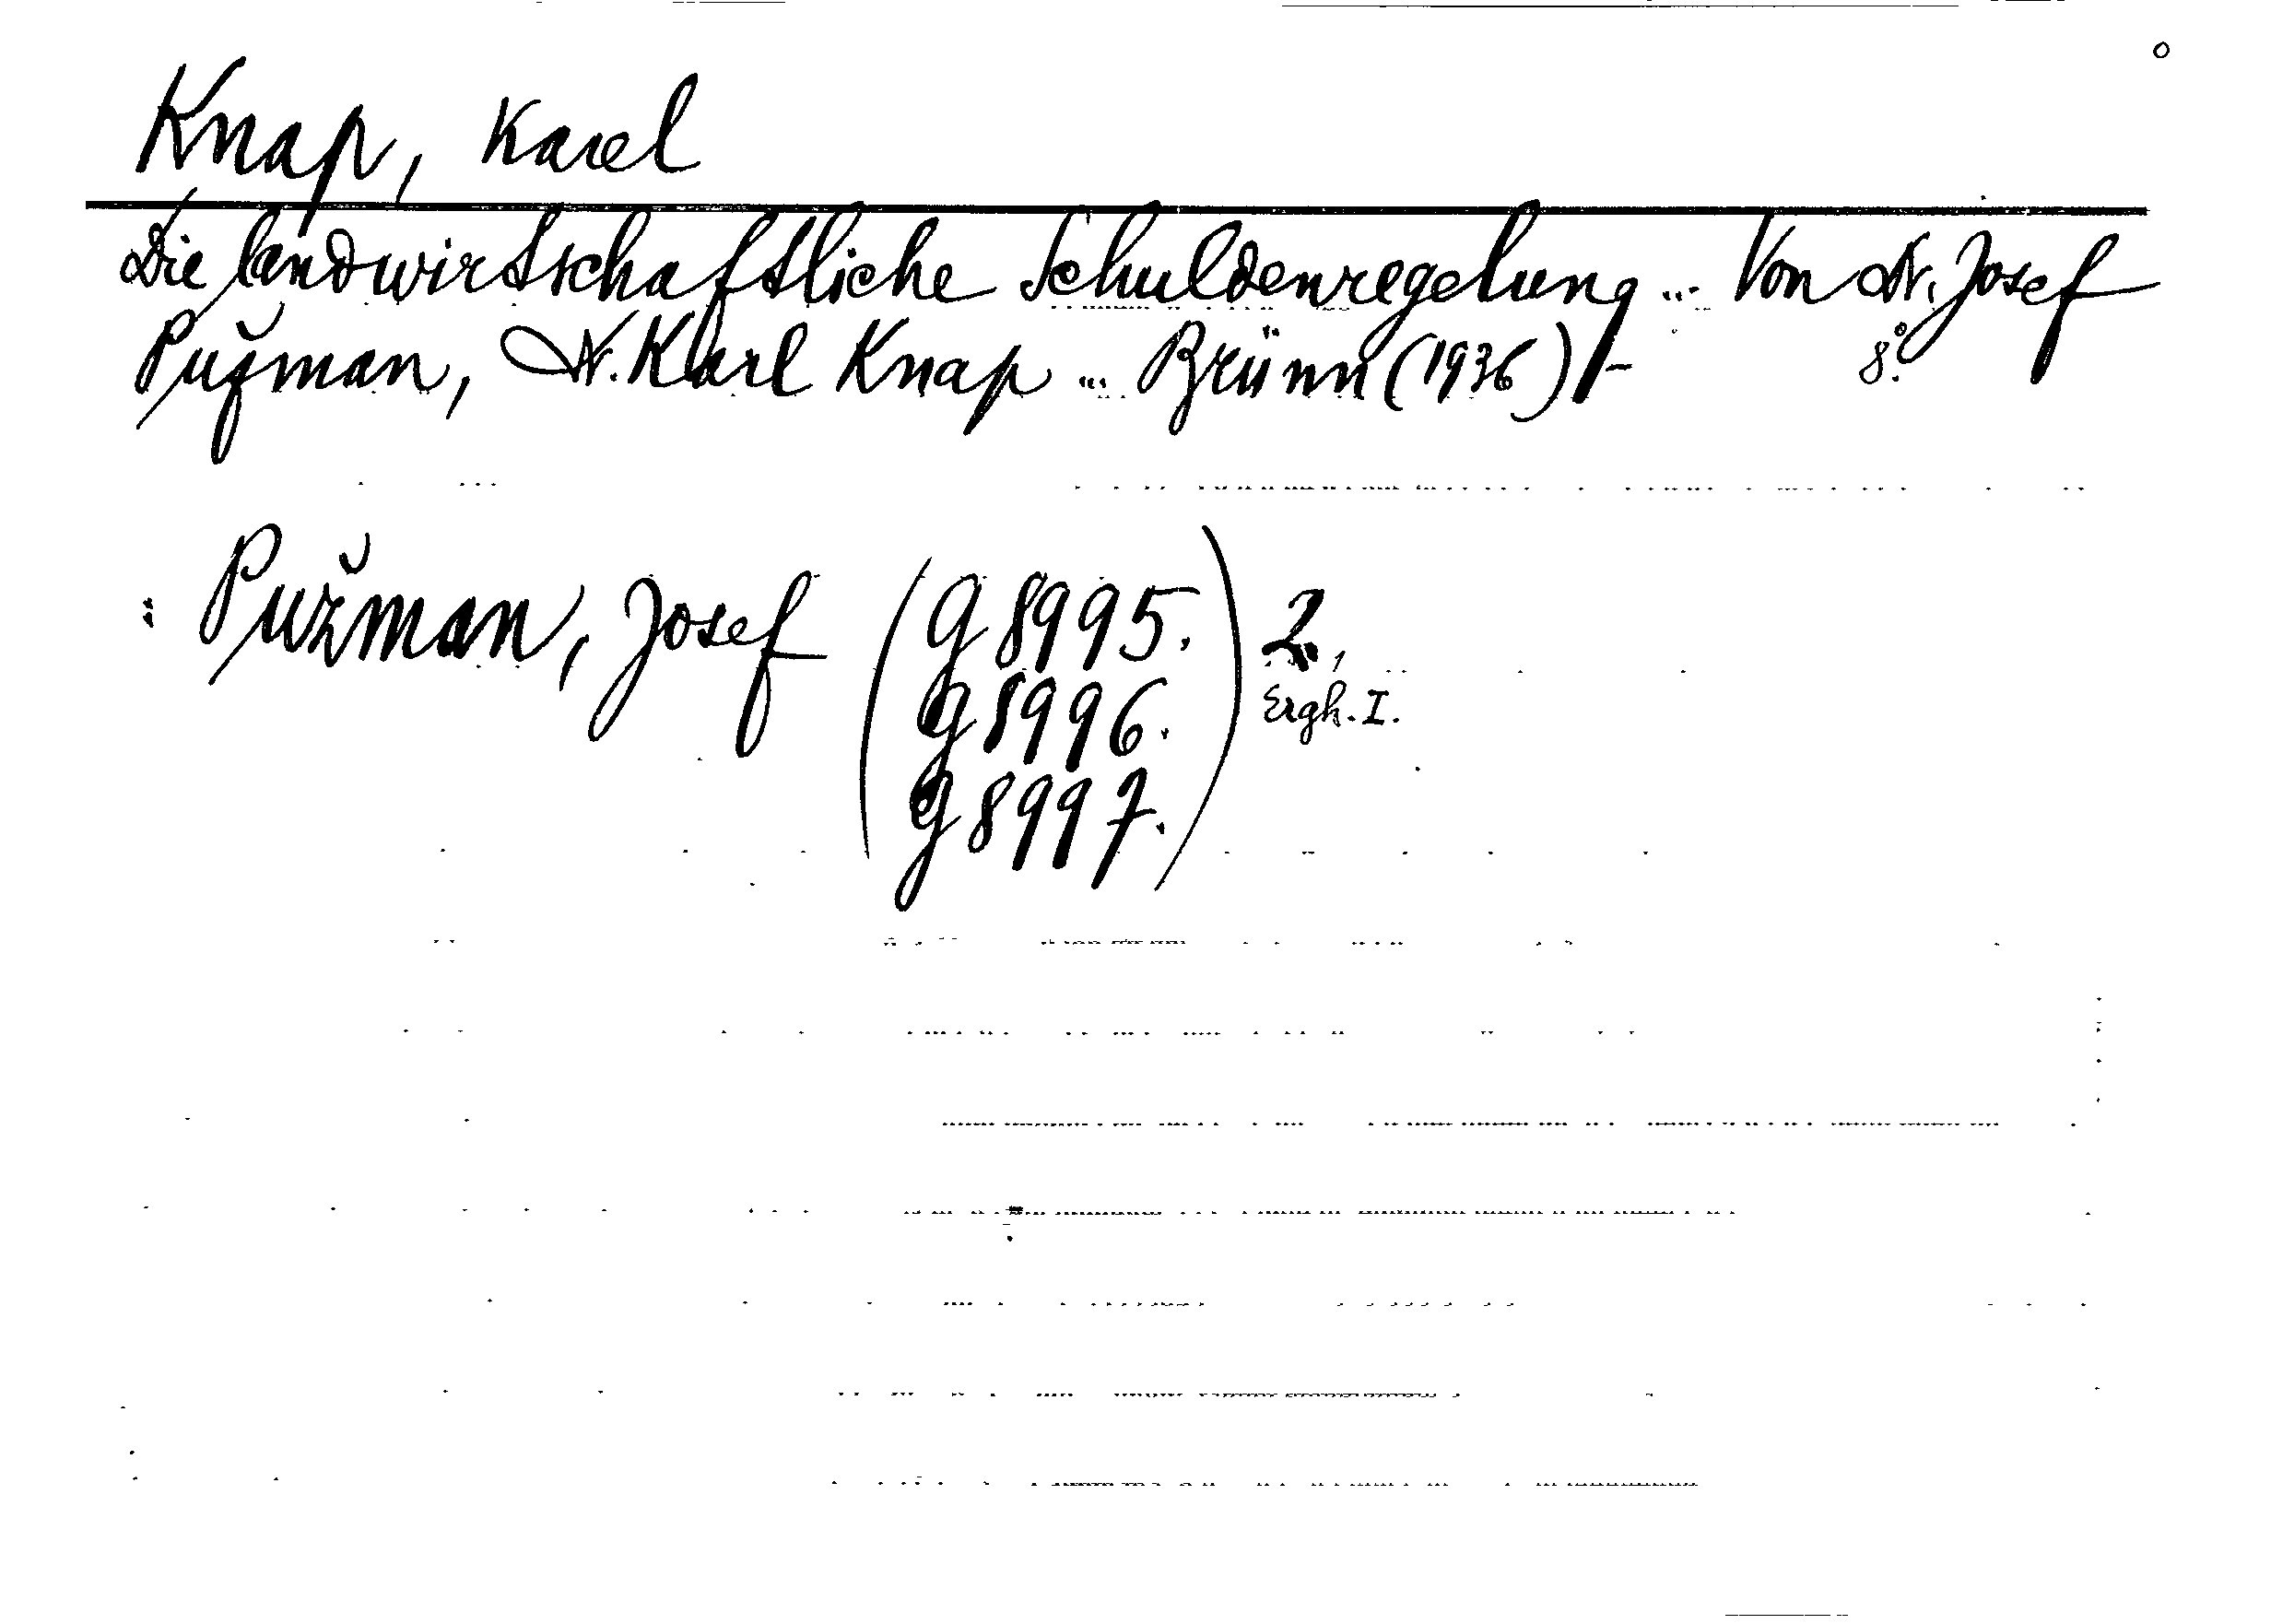 Knap, Karel
Die landwirtschaftliche Schuldenregelung ... Von Dr. Josef
Pužman, Dr. Karl Knap ... Brünn (1936) - 8°.
: Pužman, Josef (g 8995.) 2.,
g 8996. Ergh. I.
g 8997.